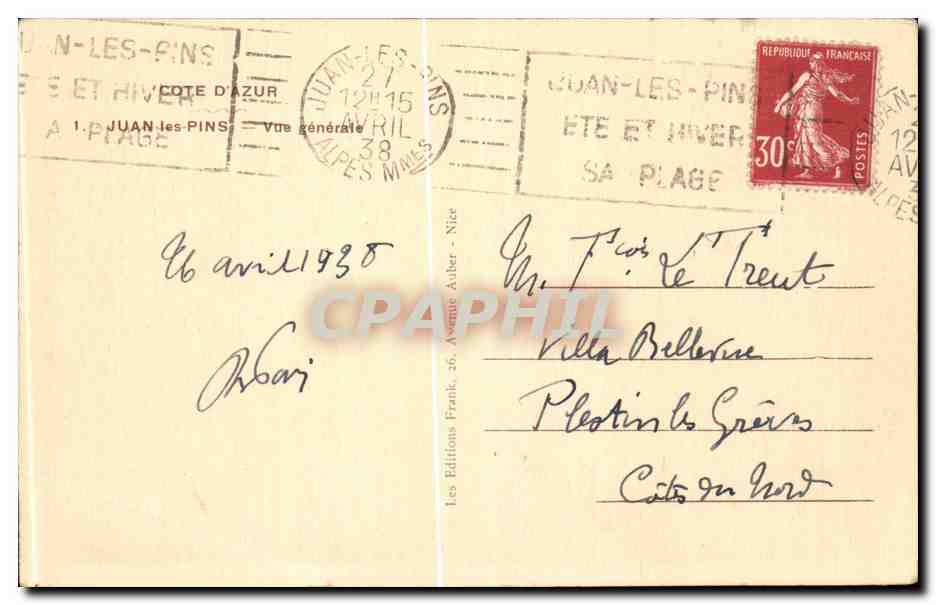 JUAN-LES-PINS
ETE ET HIVER
SA PLAGE
COTE D'AZUR
1. JUAN les-PINS — Vue générale
JUAN-LES-PINS
27
12H15
AVRIL
38
ALPES Mmes
JUAN-LES-PINS
ETE ET HIVER
SA PLAGE
REPUBLIQUE FRANÇAISE
30c
POSTES
JUAN-
12
AV
ALPES
26 avril 1938
M. Fcois Le Treut
Villa Bellevue
Plestin les Grèves
Côtes du Nord
Les Editions Frank, 26, Avenue Auber - Nice
CPAPHIL